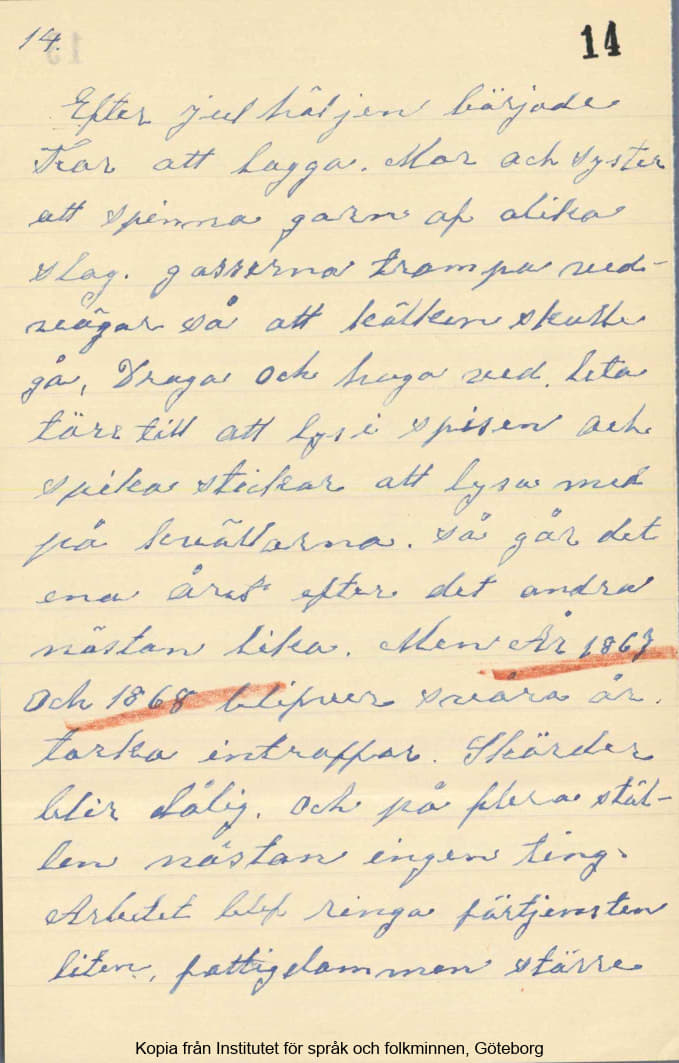 14.
14
Efter julhäljen började
Far att hagga. Mor och syster
att spinna garn af olika
slag. gasserna trampa ved-
vägar så att kälken skulle
gå, Draga och huga ved. leta
töre till att lys i spisen och
spika stickar att lysa med
på kvällarna. så går det
ena året efter det andra
nästan lika. Men År 1867
och 1868 blifver svåra år.
torka intraffar. Skörder
blir dålig. och på flera stäl-
len nästan ingen ting.
Arbetet blef ringa förtjensten
liten, fattigdommen större
Kopia från Institutet för språk och folkminnen, Göteborg